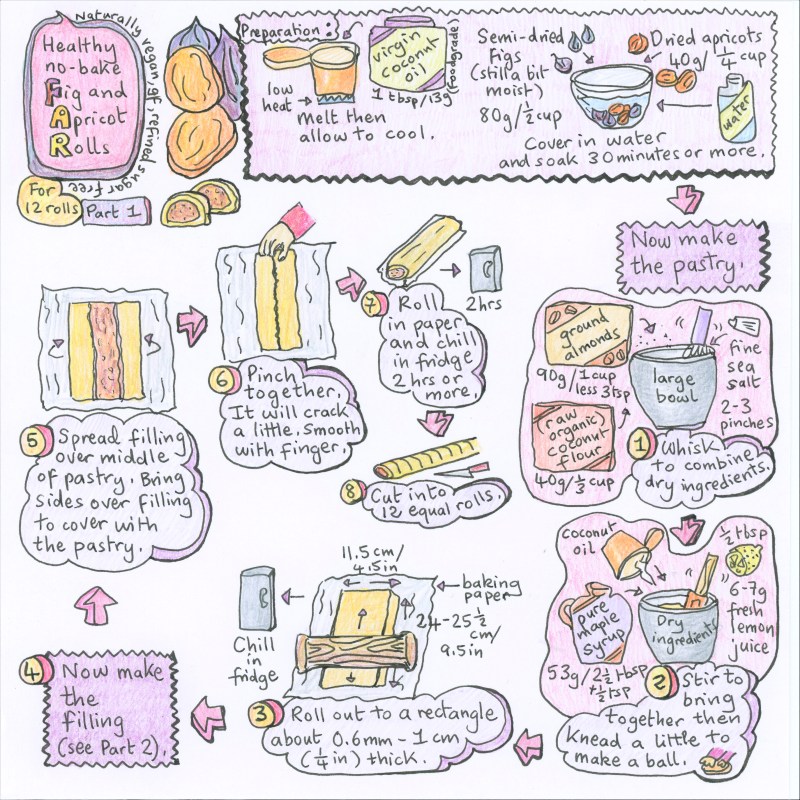 Naturally vegan, gf, refined sugar free
Healthy
no-bake
Fig and
Apricot
Rolls
For
12 rolls
Part 1
Preparation:
low
heat
melt then
allow to cool.
virgin
coconut
oil
1 tbsp/13g
Semi-dried
Figs
(still a bit
moist)
80g/½ cup
Dried apricots
40g/¼ cup
water
Cover in water
and soak 30 minutes or more.
Now make
the pastry.
ground
almonds
90g/1 cup
less 3 tsp
(raw
organic)
coconut
flour
40g/⅓ cup
large
bowl
fine
sea
salt
2-3
pinches
1 Whisk
to combine
dry ingredients.
coconut
oil
pure
maple
syrup
53g/2½ tbsp
+½ tsp
Dry
ingredients
½ tbsp
6-7g
fresh
lemon
juice
2 Stir to
bring
together then
knead a little to
make a ball.
11.5cm/
4.5in
baking
paper
24-25½
cm/
9.5in
Chill
in
fridge
3 Roll out to a rectangle
about 0.6mm-1cm
(¼ in) thick.
4 Now make
the
filling
(see Part 2).
5 Spread filling
over middle
of pastry. Bring
sides over filling
to cover with
the pastry.
6 Pinch
together.
It will crack
a little. Smooth
with finger.
7 Roll
in paper
and chill
in fridge
2 hrs or
more.
2hrs
8 Cut into
12 equal rolls.